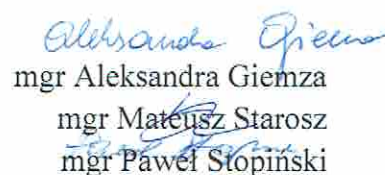 Aleksandra Giemza
mgr Aleksandra Giemza
mgr Mateusz Starosz
mgr Paweł Stopiński